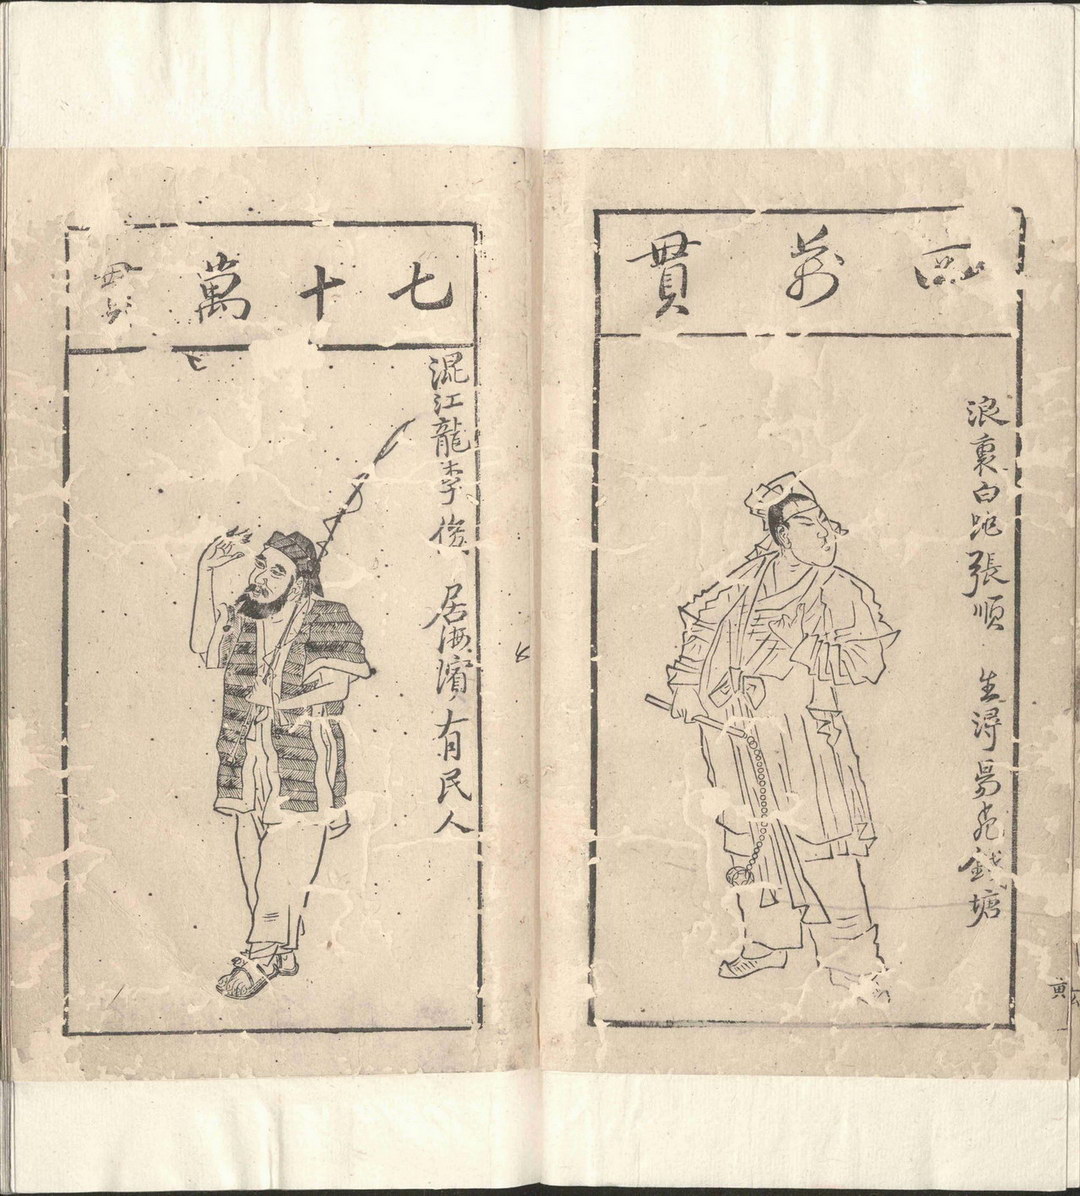 萬貫
浪裏白跳張順 生潯昜死錢塘
七十萬貫
混江龍李俊 居海濱有民人